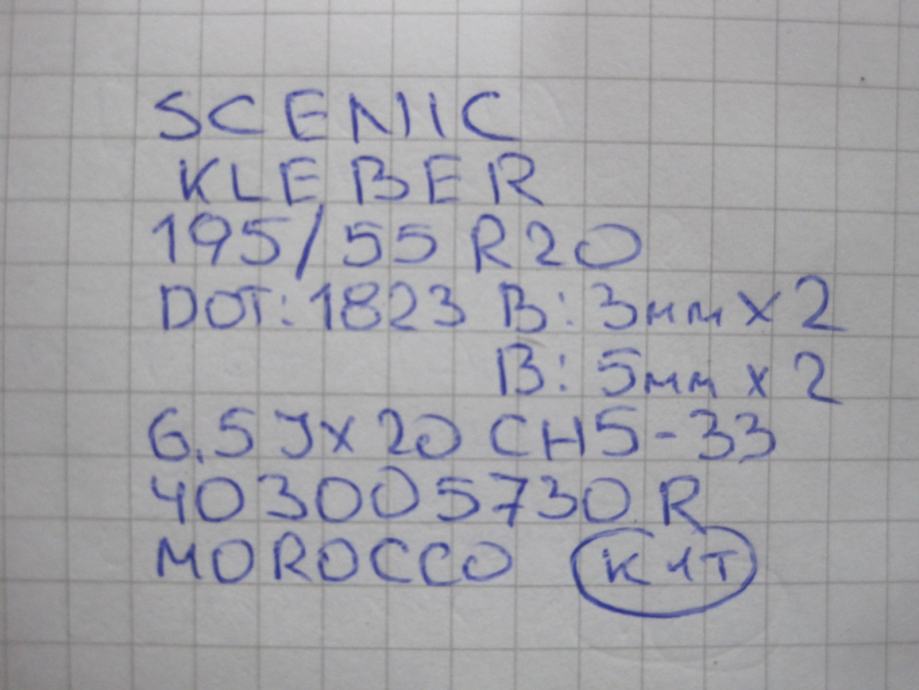 SCENIC
KLEBER
195/55 R20
DOT: 1823 B: 3мм x 2
B: 5мм x 2
6.5Jx20 CH5-33
403005730R
MOROCCO